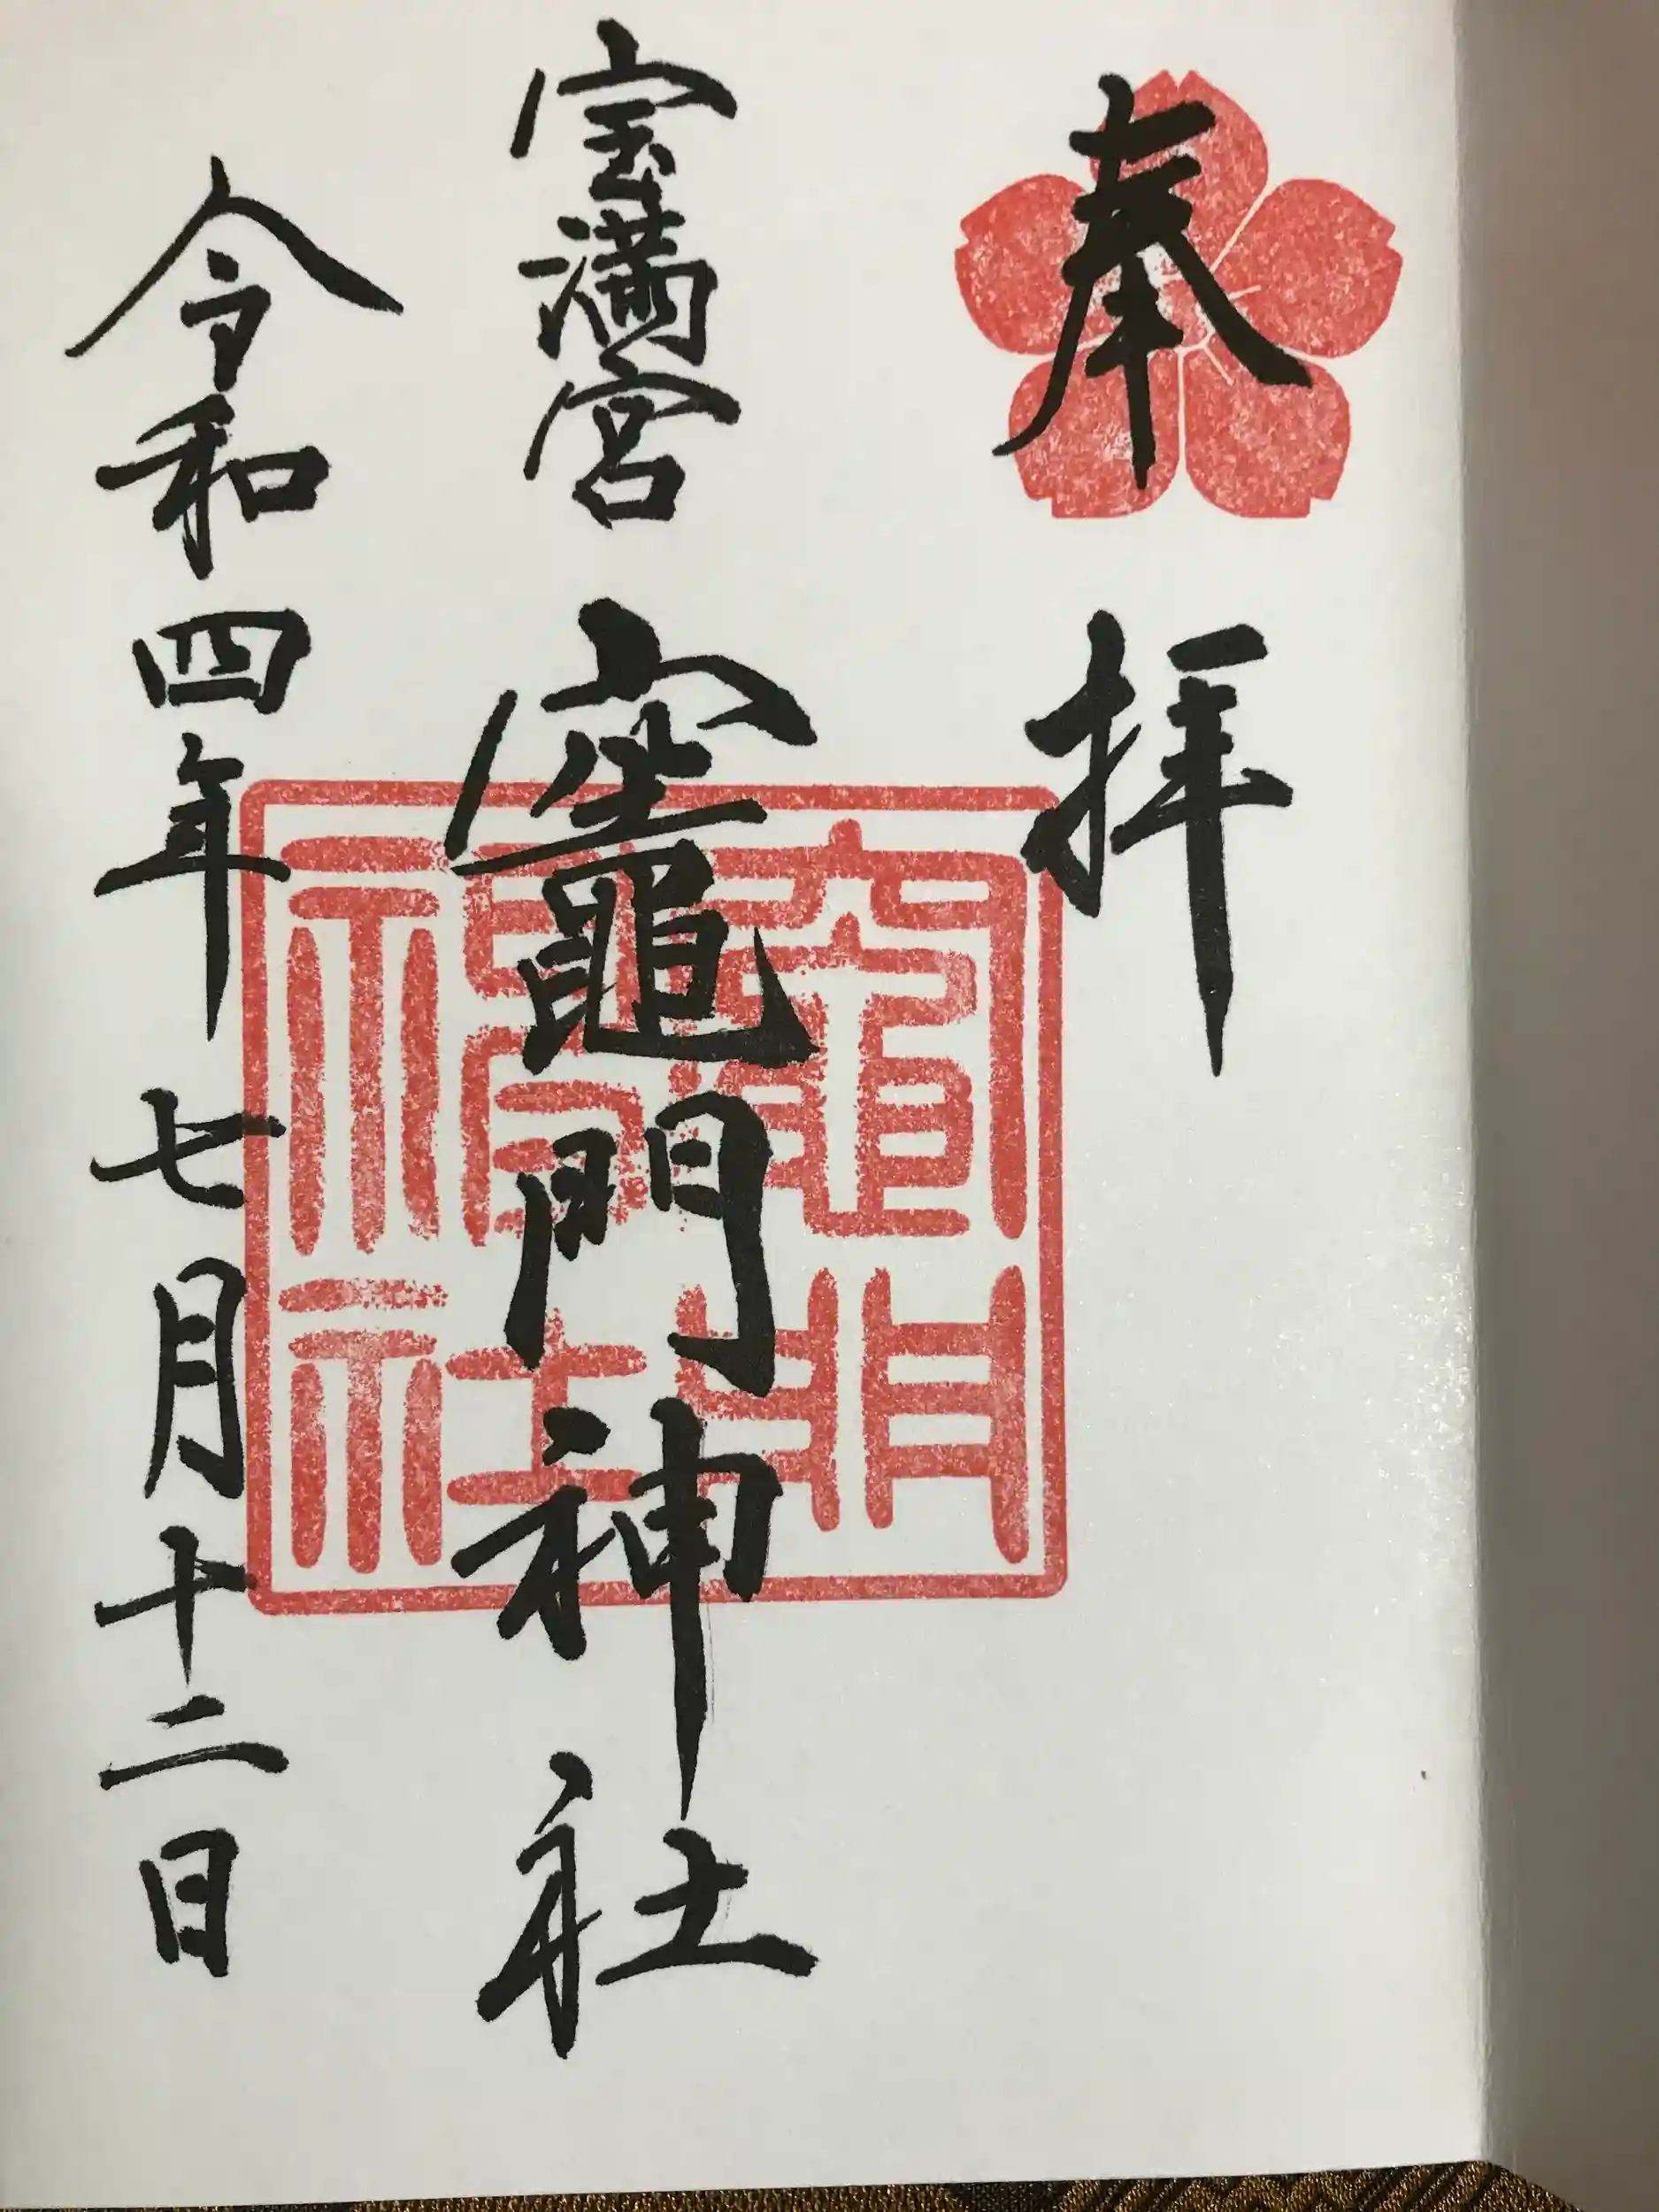 奉拝
宝満宮 竈門神社
令和四年七月十二日
竈門
神社